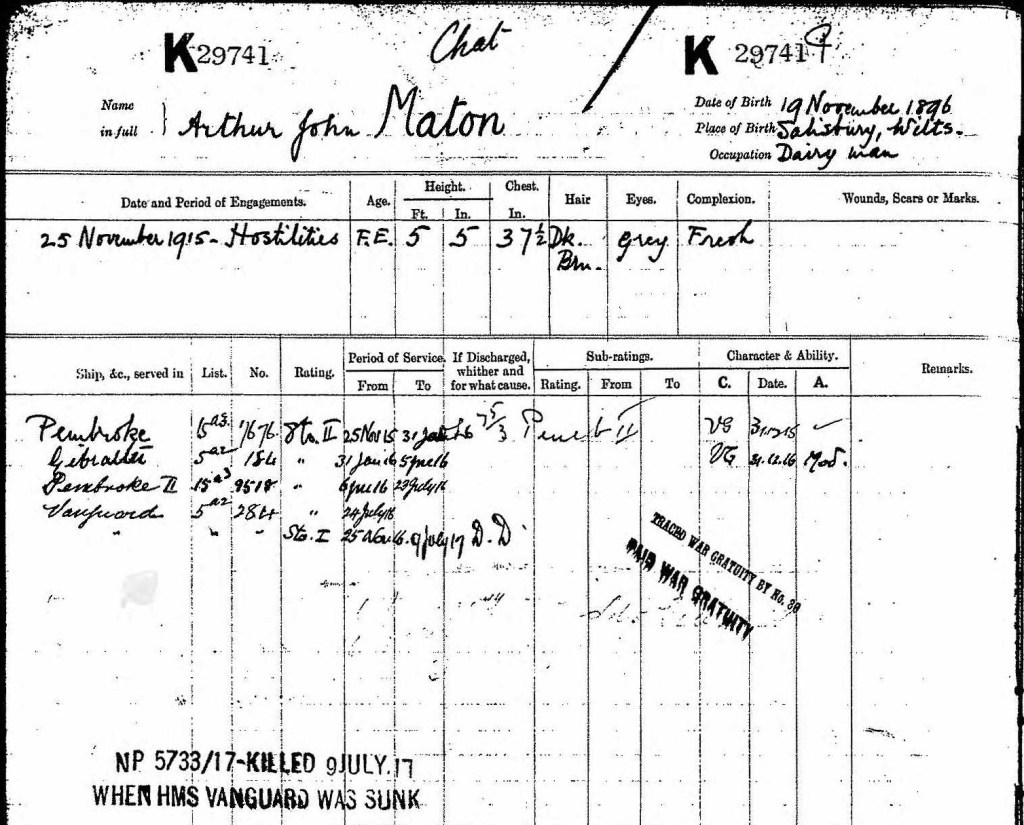 K 29741 Chat K 29741
Name in full Arthur John Maton
Date of Birth 19 November 1896
Place of Birth Salisbury, Wilts.
Occupation Dairy man
Date and Period of Engagements. Age. Height. Ft. In. Chest. In. Hair Eyes. Complexion. Wounds, Scars or Marks.
25 November 1915 - Hostilities F.E. 5 5 37½ Dk. Brn. Grey Fresh
Ship, &c., served in List. No. Rating. Period of Service. From To If Discharged, whither and for what cause. Sub-ratings. Rating. From To Character & Ability. C. Date. A. Remarks.
Pembroke 15a3 Sto. II 25 Nov 15 31 VG 31.12.15 ✓
Gibraltar 5a2 184 " 31 Jan 16 5 VG 31.12.16 Mod.
Pembroke II 15a3 9518 " 6 23 July 16
Vanguard 5a2 284 " 24 July 16
" " " Sto. I 25 Nov 16. 9 July 17 D.D.
TRACED WAR GRATUITY BY No. 39
PAID WAR GRATUITY
NP 5733/17-KILLED 9 JULY.17
WHEN HMS VANGUARD WAS SUNK